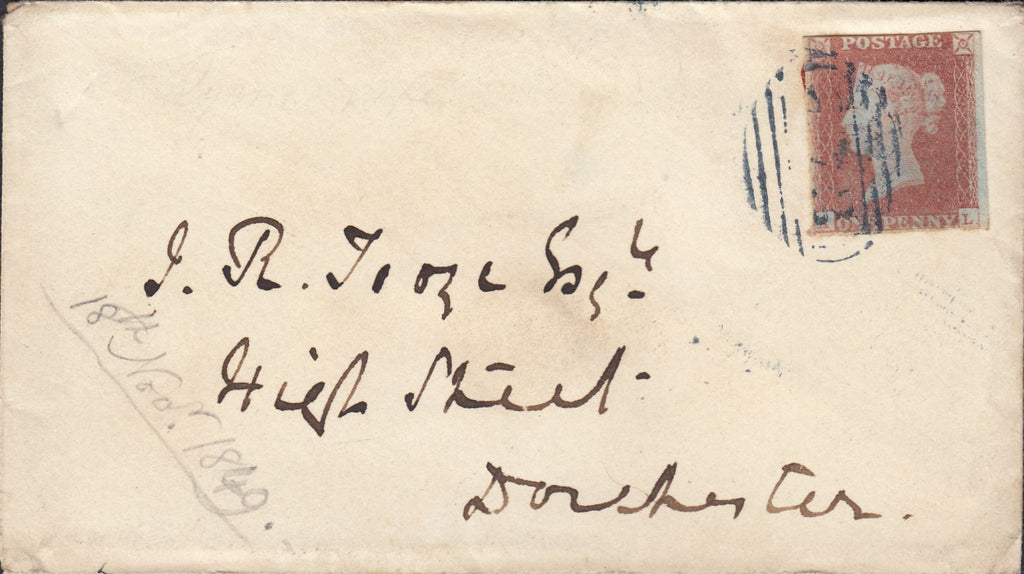 POSTAGE
ONE PENNY L
J. R. Troze Esqr.
High Street
Dorchester.
18th Novr. 1849.